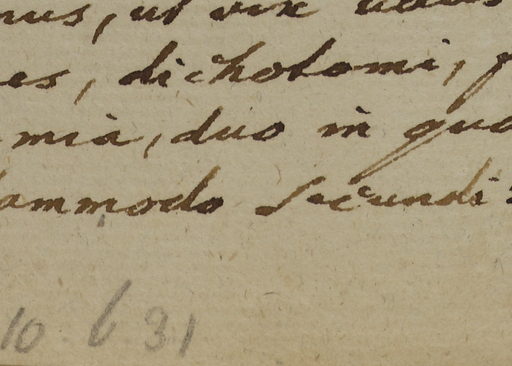 nus, ut vix
es, dichotomi,
mia, duo in qua
dammodo secundi
10 b 31